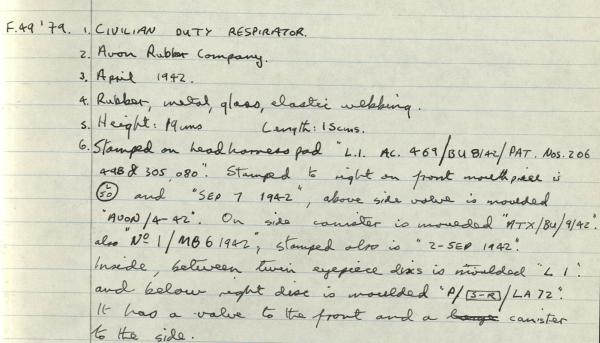 F.49 '79. 1. CIVILIAN DUTY RESPIRATOR.
2. Avon Rubber Company.
3. April 1942.
4. Rubber, metal, glass, elastic webbing.
5. Height: 19cms Length: 15cms.
6. Stamped on headharness pad "L.I. AC. 469/BU 8/42/PAT. Nos. 206
498 & 305,080". Stamped to right on front mouthpiece is
50 and "SEP 7 1942", above side valve is moulded
"AVON/4-42". On side canister is moulded "ATX/BU/9/42".
also "No 1/MB 6 1942", stamped also is "2-SEP 1942".
Inside, between twin eyepiece discs is moulded "L I".
and below right disc is moulded "P/S-R/LA 72".
It has a valve to the front and a canister
to the side.